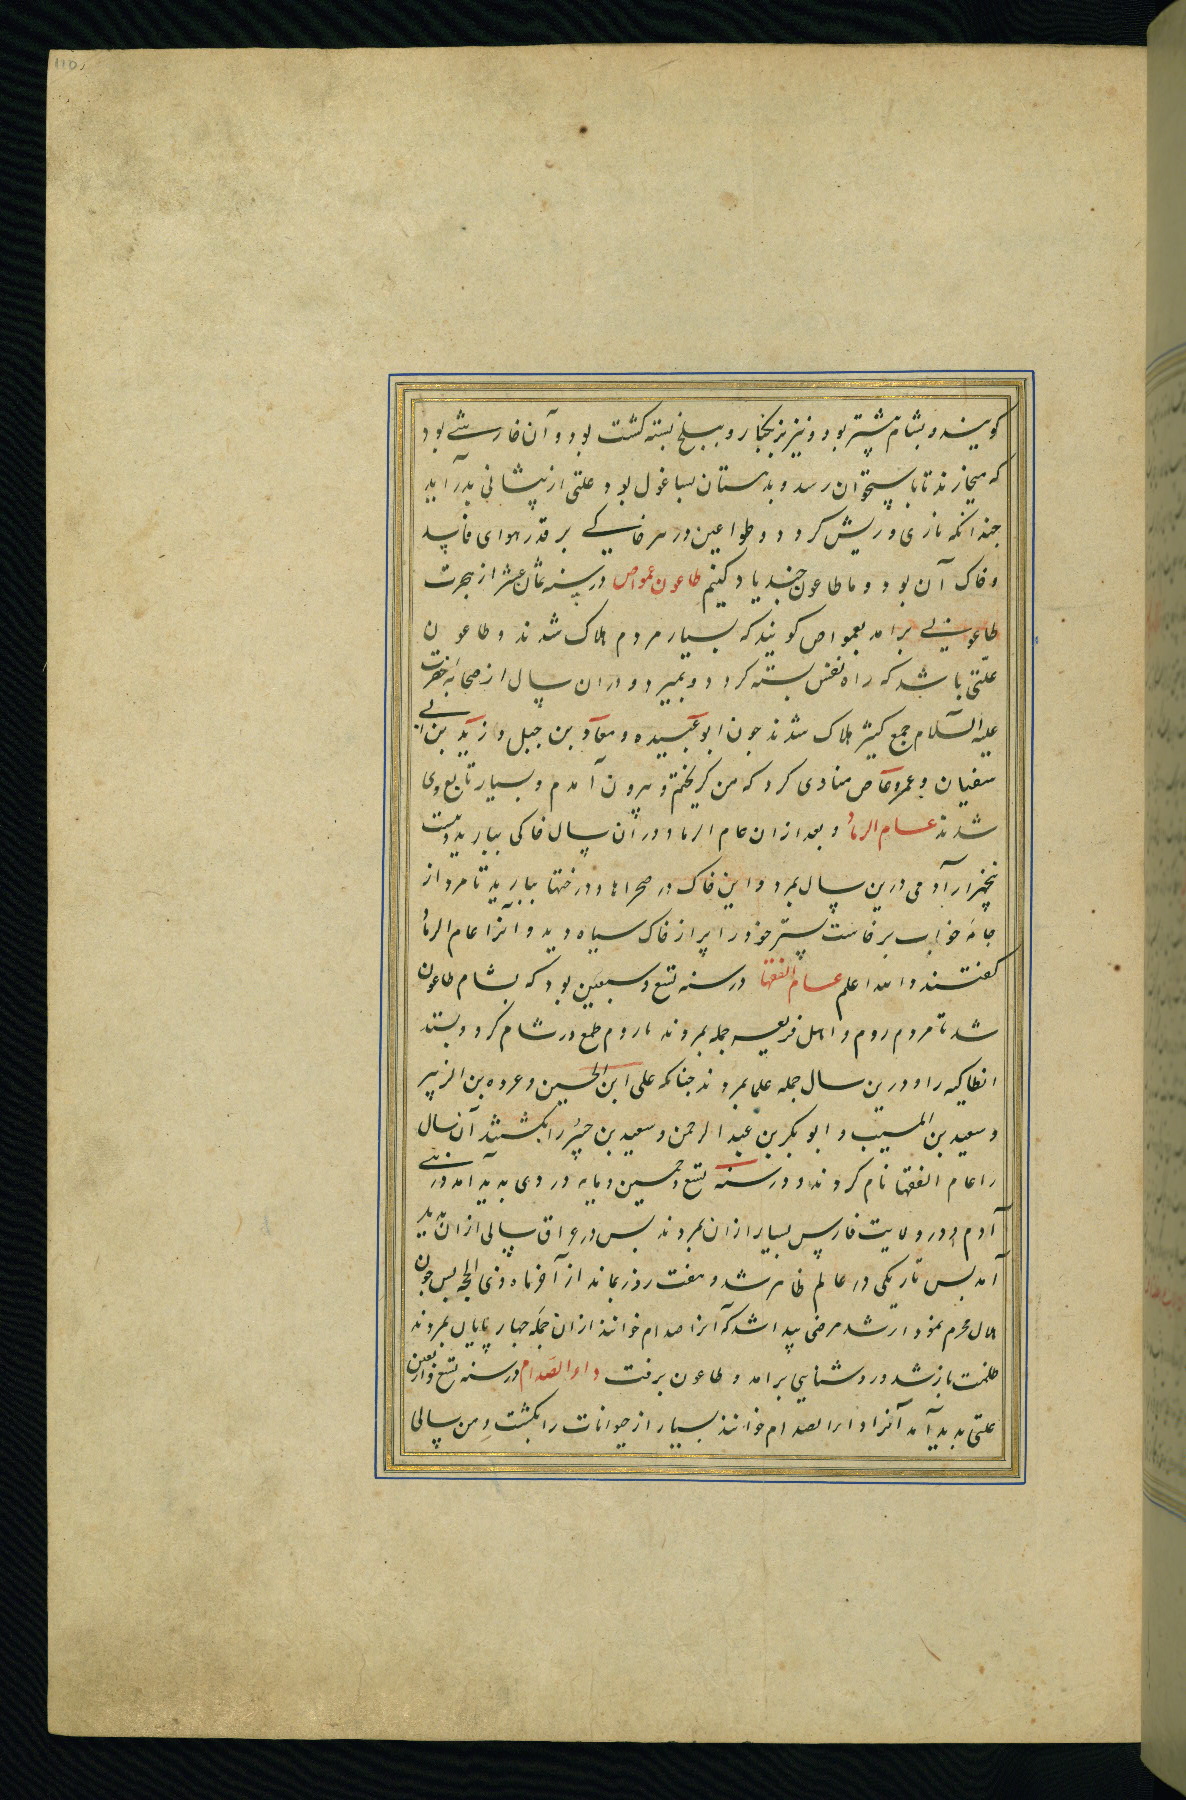 کویند و بشام بیشتر بود و نیز بزنجبار و ببلخ بسته کشت بود و آن خارشی بود
که میخارند تا باستخوان رسد و بدهستان بساغول بود علتی از پیشانی بدرآید
جندانکه نازی و ریش کردد و طواعین در هر خاکی بر قدر هوای فاسد
و خاک آن بود و ما طاعون جند یاد کنیم طاعون عمواس در سنه ثمان عشر از هجرت
طاعونی برامد بعمواص کویند که بسیار مردم هلاک شدند و طاعون
علتی باشد که راه نفس بسته کردد و بمیرد و دران سال از صحابه حضرت
علیه السلام جمع کثیر هلاک شدند جون ابو عبیده و معاذ بن جبل و زید بن ابی
سفیان و عمرو عاص منادی کرد که من کریختم و بیرون آمدم و بسیار تابع وی
شدند عام الرماد و بعد ازان عام الرماد و در آن سال خاکی ببارید و بیست
پنجهزار آدمی درین سال بمرد و این خاک در صحراها و درختها ببارید تا مرد از
جامه خواب برخاست بستر خود را پر از خاک سیاه دید و آنرا عام الرماد
کفتند والله اعلم عام الفقها در سنه تسع و سبعین بود که بشام طاعون
شد تا مردم روم و اهل قریه جمله بمردند تا روم طمع در شام کرد و بستد
انطاکیه را و درین سال جمله علما بمردند جنانکه علی ابن الحسین و عروه بن الزبیر
و سعید بن المسیب و ابو بکر بن عبد الرحمن و سعید بن جبیر را بکشتند آن سال
را عام الفقها نام کردند و در سنه تسع و خمسین و مایه دردی پدید آمد در بنی
آدم و در ولایت فارس بسیار ازان بمردند بس در عراق سالی ازان پدید
آمد بس تاریکی در عالم ظاهر شد و هفت روز بماند از آخر ماه ذی الحجه بس جون
هلال محرم نمودار شد مرضی پیدا شد که آنرا صدام خوانند ازان جمله جهار پایان بمردند
ظلمت باز شد و روشنایی برامد و طاعون برفت داء الصدام در سنه تسع و اربعین
علتی بدید آمد آنرا داء الصدام خوانند بسیار از حیوانات را بکشت و من سالی